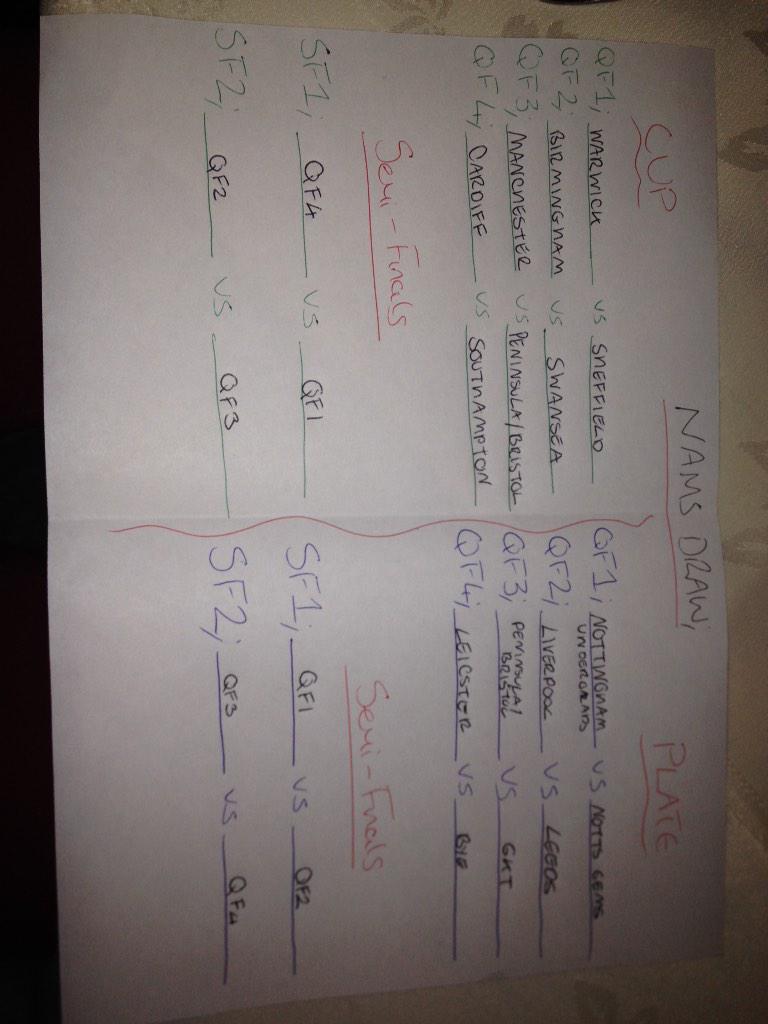 NAMS DRAW;
CUP
QF1; WARWICK VS SHEFFIELD
QF2; BIRMINGHAM VS SWANSEA
QF3; MANCHESTER VS PENINSULA/BRISTOL
QF4; CARDIFF VS SOUTHAMPTON
Semi-Finals
SF1; QF4 VS QF1
SF2; QF2 VS QF3
PLATE
QF1; NOTTINGHAM UNDERGRADS VS NOTTS GEMS
QF2; LIVERPOOL VS LEEDS
QF3; PENINSULA/ BRISTOL VS GKT
QF4; LEICSTER VS BYE
Semi-Finals
SF1; QF1 VS QF2
SF2; QF3 VS QF4